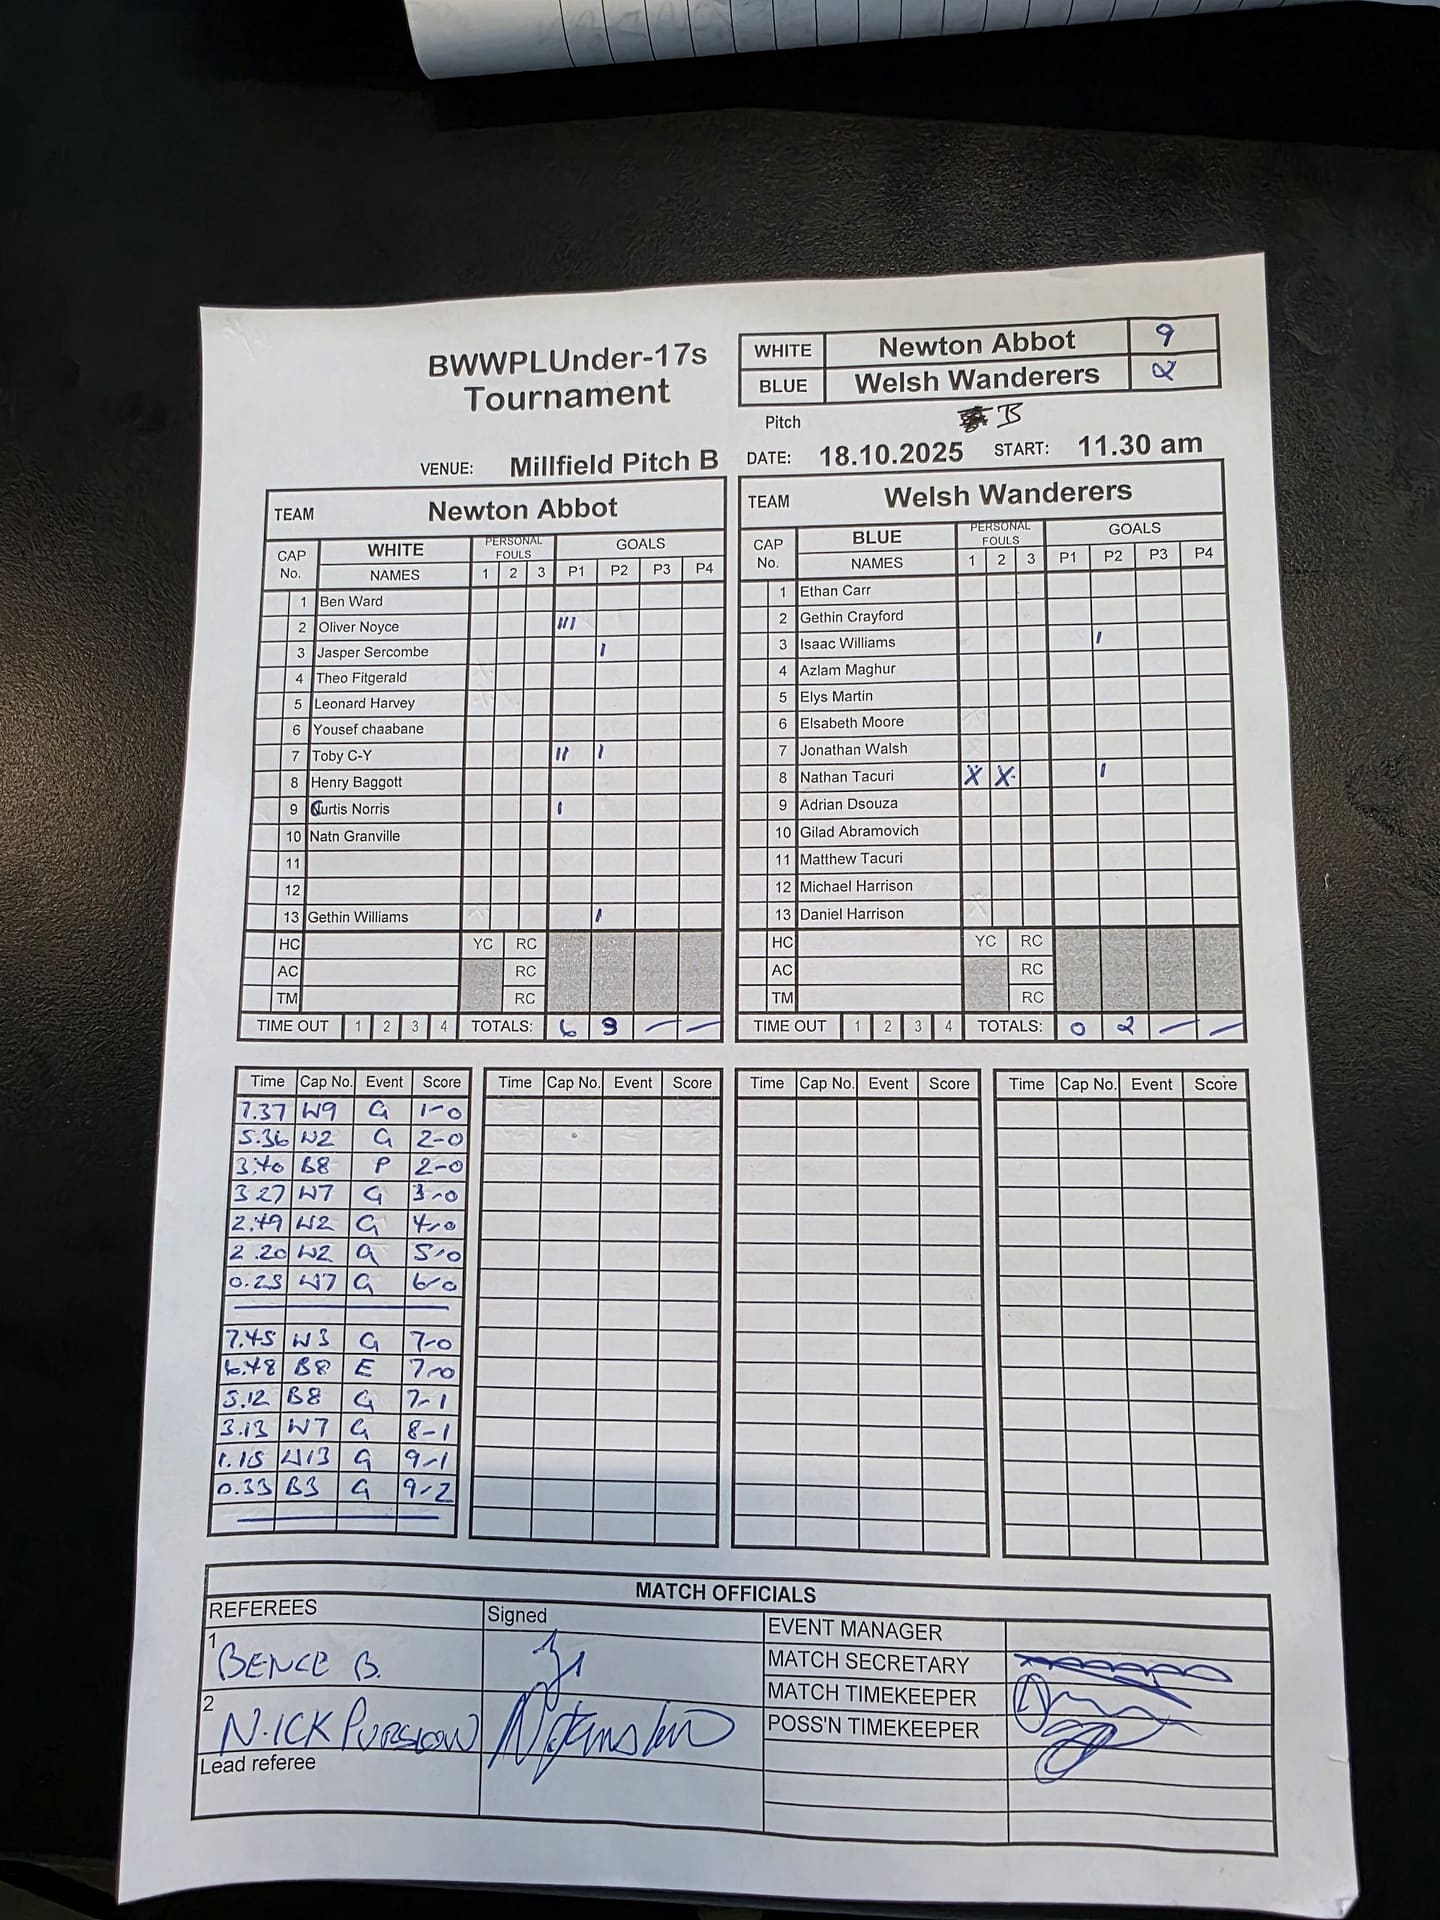 BWWPLUnder-17s
Tournament
WHITE Newton Abbot 9
BLUE Welsh Wanderers 2
Pitch B
VENUE: Millfield Pitch B DATE: 18.10.2025 START: 11.30 am
TEAM Newton Abbot
CAP No. WHITE NAMES PERSONAL FOULS 1 2 3 GOALS P1 P2 P3 P4
1 Ben Ward
2 Oliver Noyce III
3 Jasper Sercombe I
4 Theo Fitgerald
5 Leonard Harvey
6 Yousef chaabane
7 Toby C-Y II I
8 Henry Baggott
9 Curtis Norris I
10 Natn Granville
11
12
13 Gethin Williams I
HC YC RC
AC RC
TM RC
TIME OUT 1 2 3 4 TOTALS: 6 3 — —
TEAM Welsh Wanderers
CAP No. BLUE NAMES PERSONAL FOULS 1 2 3 GOALS P1 P2 P3 P4
1 Ethan Carr
2 Gethin Crayford
3 Isaac Williams I
4 Azlam Maghur
5 Elys Martin
6 Elsabeth Moore
7 Jonathan Walsh
8 Nathan Tacuri X X I
9 Adrian Dsouza
10 Gilad Abramovich
11 Matthew Tacuri
12 Michael Harrison
13 Daniel Harrison
HC YC RC
AC RC
TM RC
TIME OUT 1 2 3 4 TOTALS: 0 2 — —
Time Cap No. Event Score Time Cap No. Event Score Time Cap No. Event Score Time Cap No. Event Score
7.37 W9 G 1-0
5.36 W2 G 2-0
3.40 B8 P 2-0
3.27 W7 G 3-0
2.49 W2 G 4-0
2.20 W2 G 5-0
W7 G 6-0
7.45 W3 G 7-0
6.48 B8 E 7-0
5.12 B8 G 7-1
3.13 W7 G 8-1
1.15 W13 G 9-1
0.33 B3 G 9-2
MATCH OFFICIALS
REFEREES Signed
1 BENCE B.
2 NICK
Lead referee
EVENT MANAGER
MATCH SECRETARY
MATCH TIMEKEEPER
POSS'N TIMEKEEPER